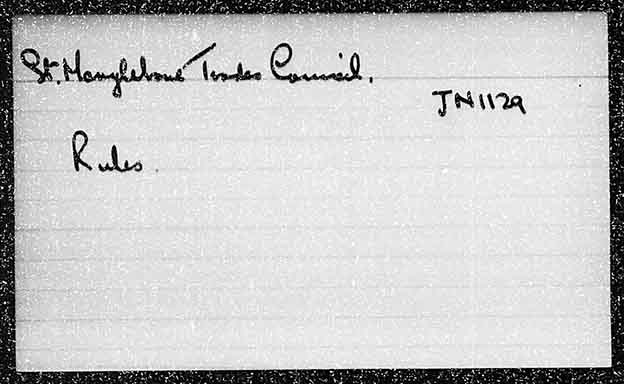 St. Marylebone Trades Council.
JN1129
Rules.